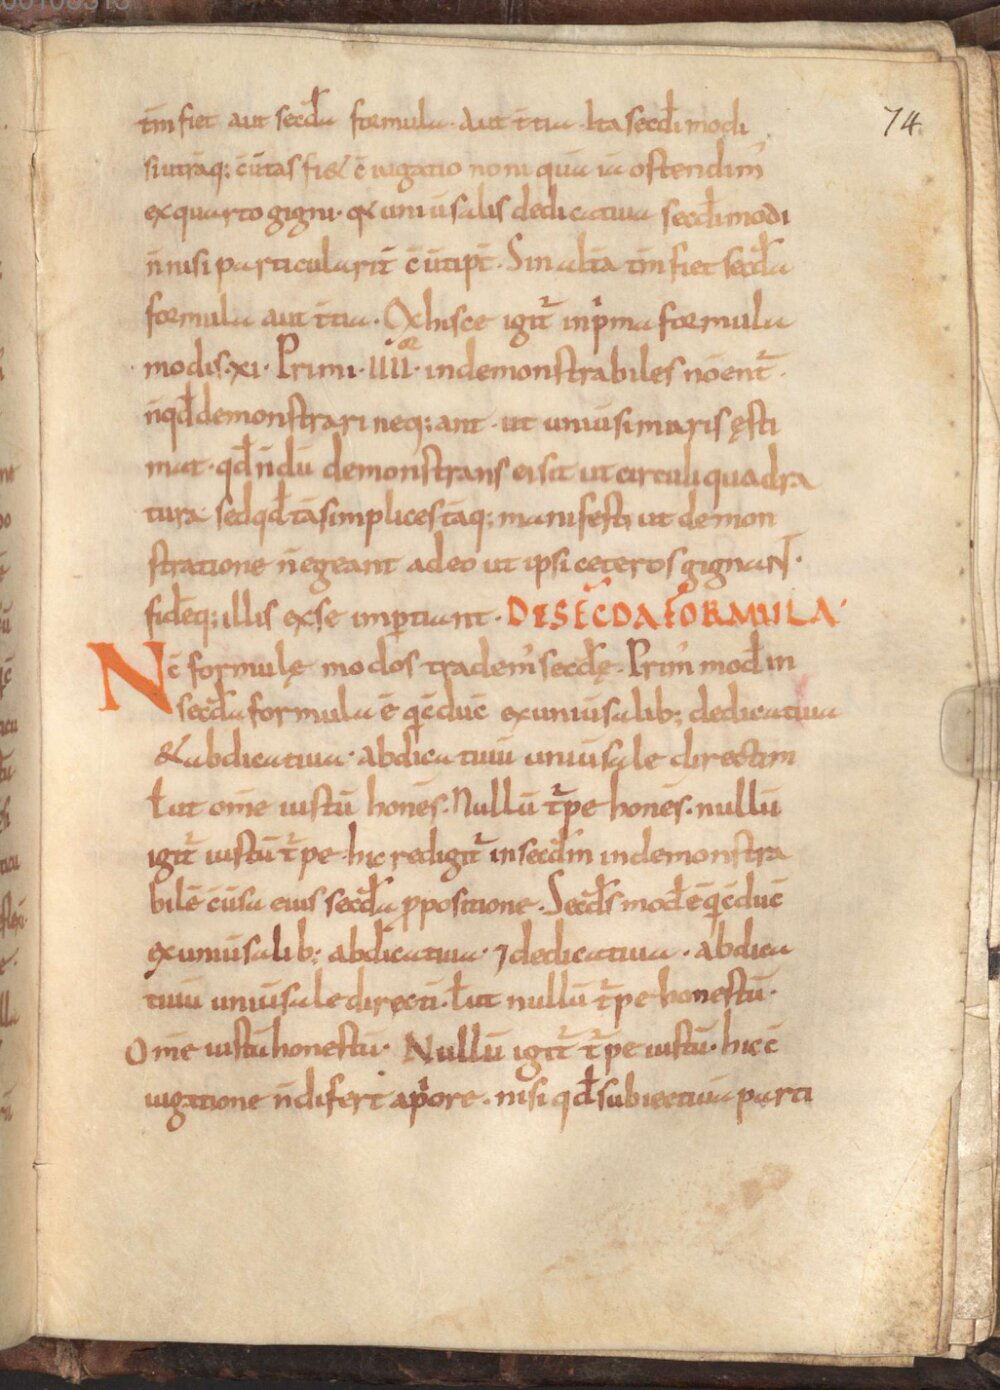 74
tm̄ fiet aut secd̄a formula. Aut t̄tia. Ita secd̄i modi
si utraq; c̄ūtas fi& c̄iugatio noni qua ia ostendim̄
ex quarto gigni. q̄ uniūsalis dedicatiua secd̄i modi
n̄ nisi particularit̄ c̄ūtip̄t. Sin alt̄a tm̄ fiet secd̄a
formula aut t̄tia. Ex hisce igit̄ in p̄ma formula
modis. xi. Primi. IIII. indemonstrabiles nōent̄.
n̄ qd̄ demonstrari neq; ant. ut uniūsi maris ęsti
mat. qd̄ n̄dū demonstrans ei sit ut circuli quadra
tura. sed qd̄ tā simplices tāq; manifesti ut demon
stratione n̄ egeant adeo ut ipsi ceteros gignant.
fidēq; illis ex se imp̄tiant. DE SEC̄DA FORMULA.
Nc̄ formulę modos tradem̄ secd̄ę. Prim̄ mod̄ in
secd̄a formula ē q̄ c̄duc̄ ex uniūsalib; dedicatiua
& abdicatiua. abdicatiuū uniūsale directim
ł ut om̄e iustū honēs. Nullū t̄pe honēs. nullū
igit̄ iustū t̄pe. hic redigit̄ in secd̄m indemonstra
bilē c̄ūsa eius secd̄a p̄positione. Secd̄s mod̄ ē q̄ c̄duc̄
ex uniūsalib; abdicatiua. ⁊ dedicatiua. abdica
tiuū uniūsale directi. ł ut nullū t̄pe honestū.
Om̄e iustū honestū. Nullū igit̄ t̄pe iustū. hic c̄
iugatione n̄ difert a p̄ore. nisi qd̄ subiectiua parti